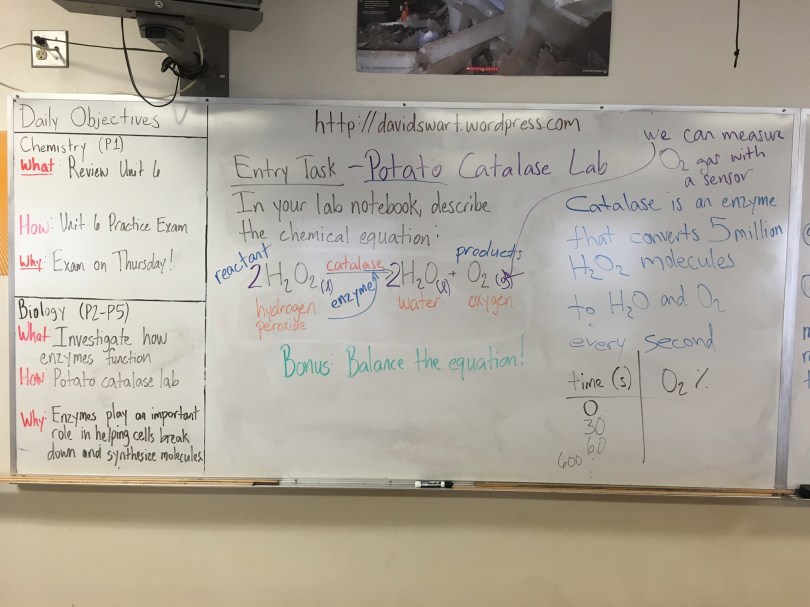 Daily Objectives
Chemistry (P1)
What: Review Unit 6
How: Unit 6 Practice Exam
Why: Exam on Thursday!
Biology (P2-P5)
What: Investigate how
enzymes function
How Potato catalase lab
Why: Enzymes play an important
role in helping cells break
down and synthesize molecules.
http://davidswart.wordpress.com
Entry Task - Potato Catalase Lab
In your lab notebook, describe
the chemical equation:
reactant
products
catalase
2H₂O₂(l) → 2H₂O(l) + O₂(g)
enzyme
hydrogen
peroxide
water
oxygen
Bonus: Balance the equation!
we can measure
O₂ gas with
a sensor
Catalase is an enzyme
that converts 5 million
H₂O₂ molecules
to H₂O and O₂
every second
time (s) O₂ %
0
30
60
600